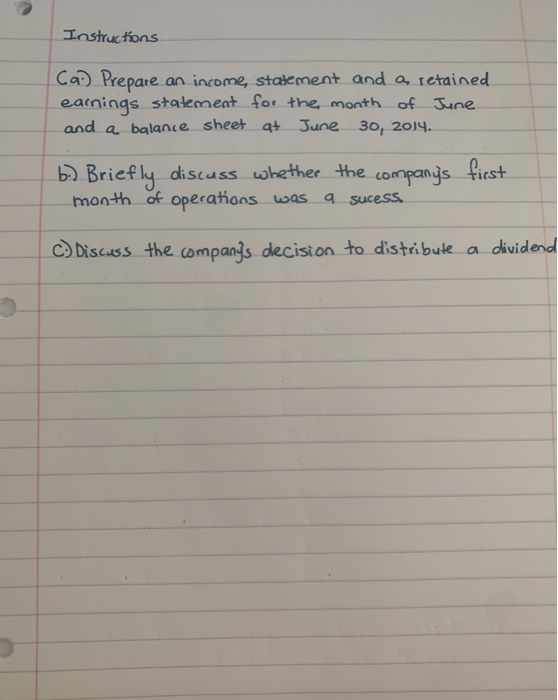 Instructions
(a.) Prepare an income, statement and a, retained
earnings statement for the, month of June
and a balance sheet at June 30, 2014.
b.) Briefly discuss whether the company's first
month of operations was a sucess.
C.) Discuss the company's decision to distribute a dividend